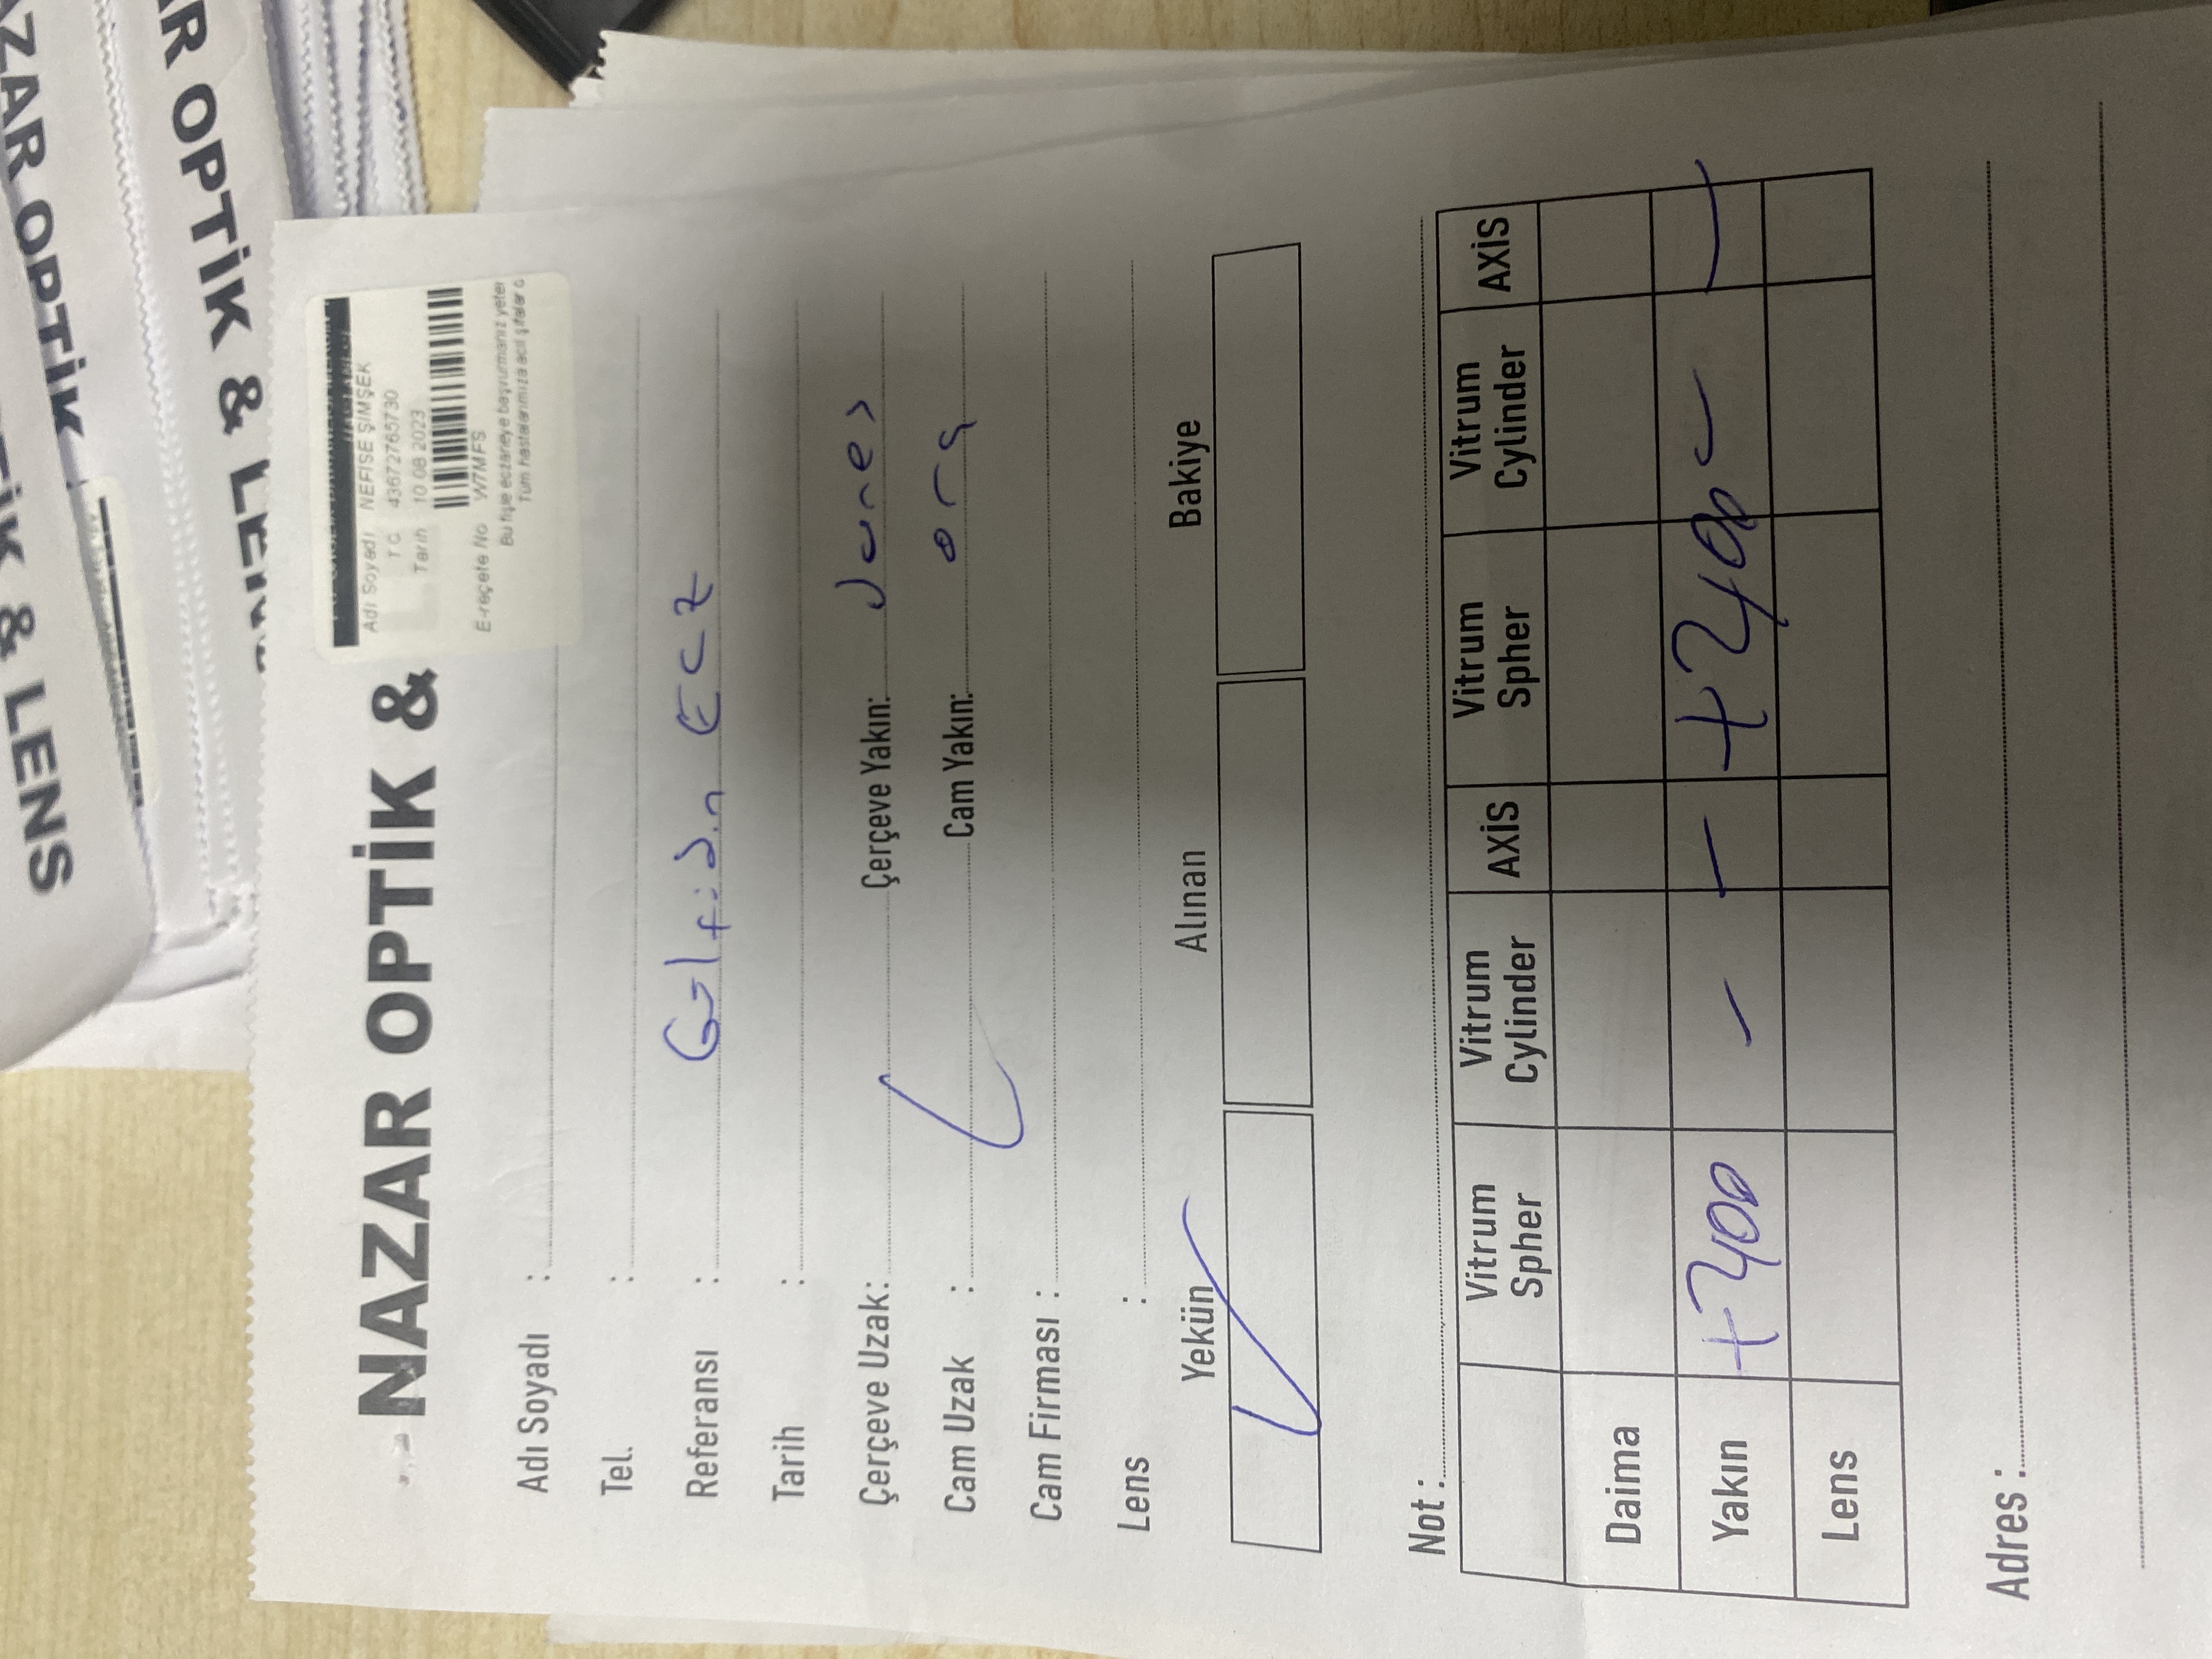 & LENS
OPTİK
OPTİK & LENS
NAZAR OPTİK &
HASTANESİ
Adı Soyadı NEFİSE ŞİMŞEK
TC 43672765730
Tarih 10.08.2023
E-reçete No W7MFS
Bu fişle eczaneye başvurmanız yeter
Tüm hastalarımıza acil şifalar
Adı Soyadı :
Tel. :
Referansı : Gülfidan ECZ
Tarih :
Çerçeve Uzak: Çerçeve Yakın: Janes
Cam Uzak : Cam Yakın: org
Cam Firması :
Lens :
Yekün Alınan Bakiye
Not :
Vitrum Spher Vitrum Cylinder AXİS Vitrum Spher Vitrum Cylinder AXİS
Daima
Yakın +400 - - +400 - -
Lens
Adres :